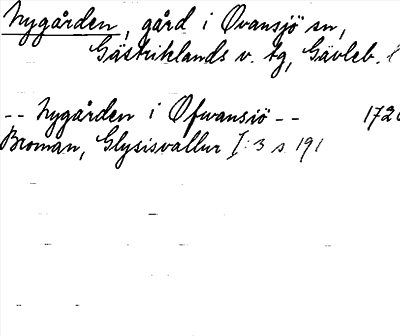 Nygården, gård i Ovansjö sn,
Gästriklands v. tg, Gävleb. l
-- Nygården i Ofwansiö -- 1720
Broman, Glysisvallur I:3 s 191